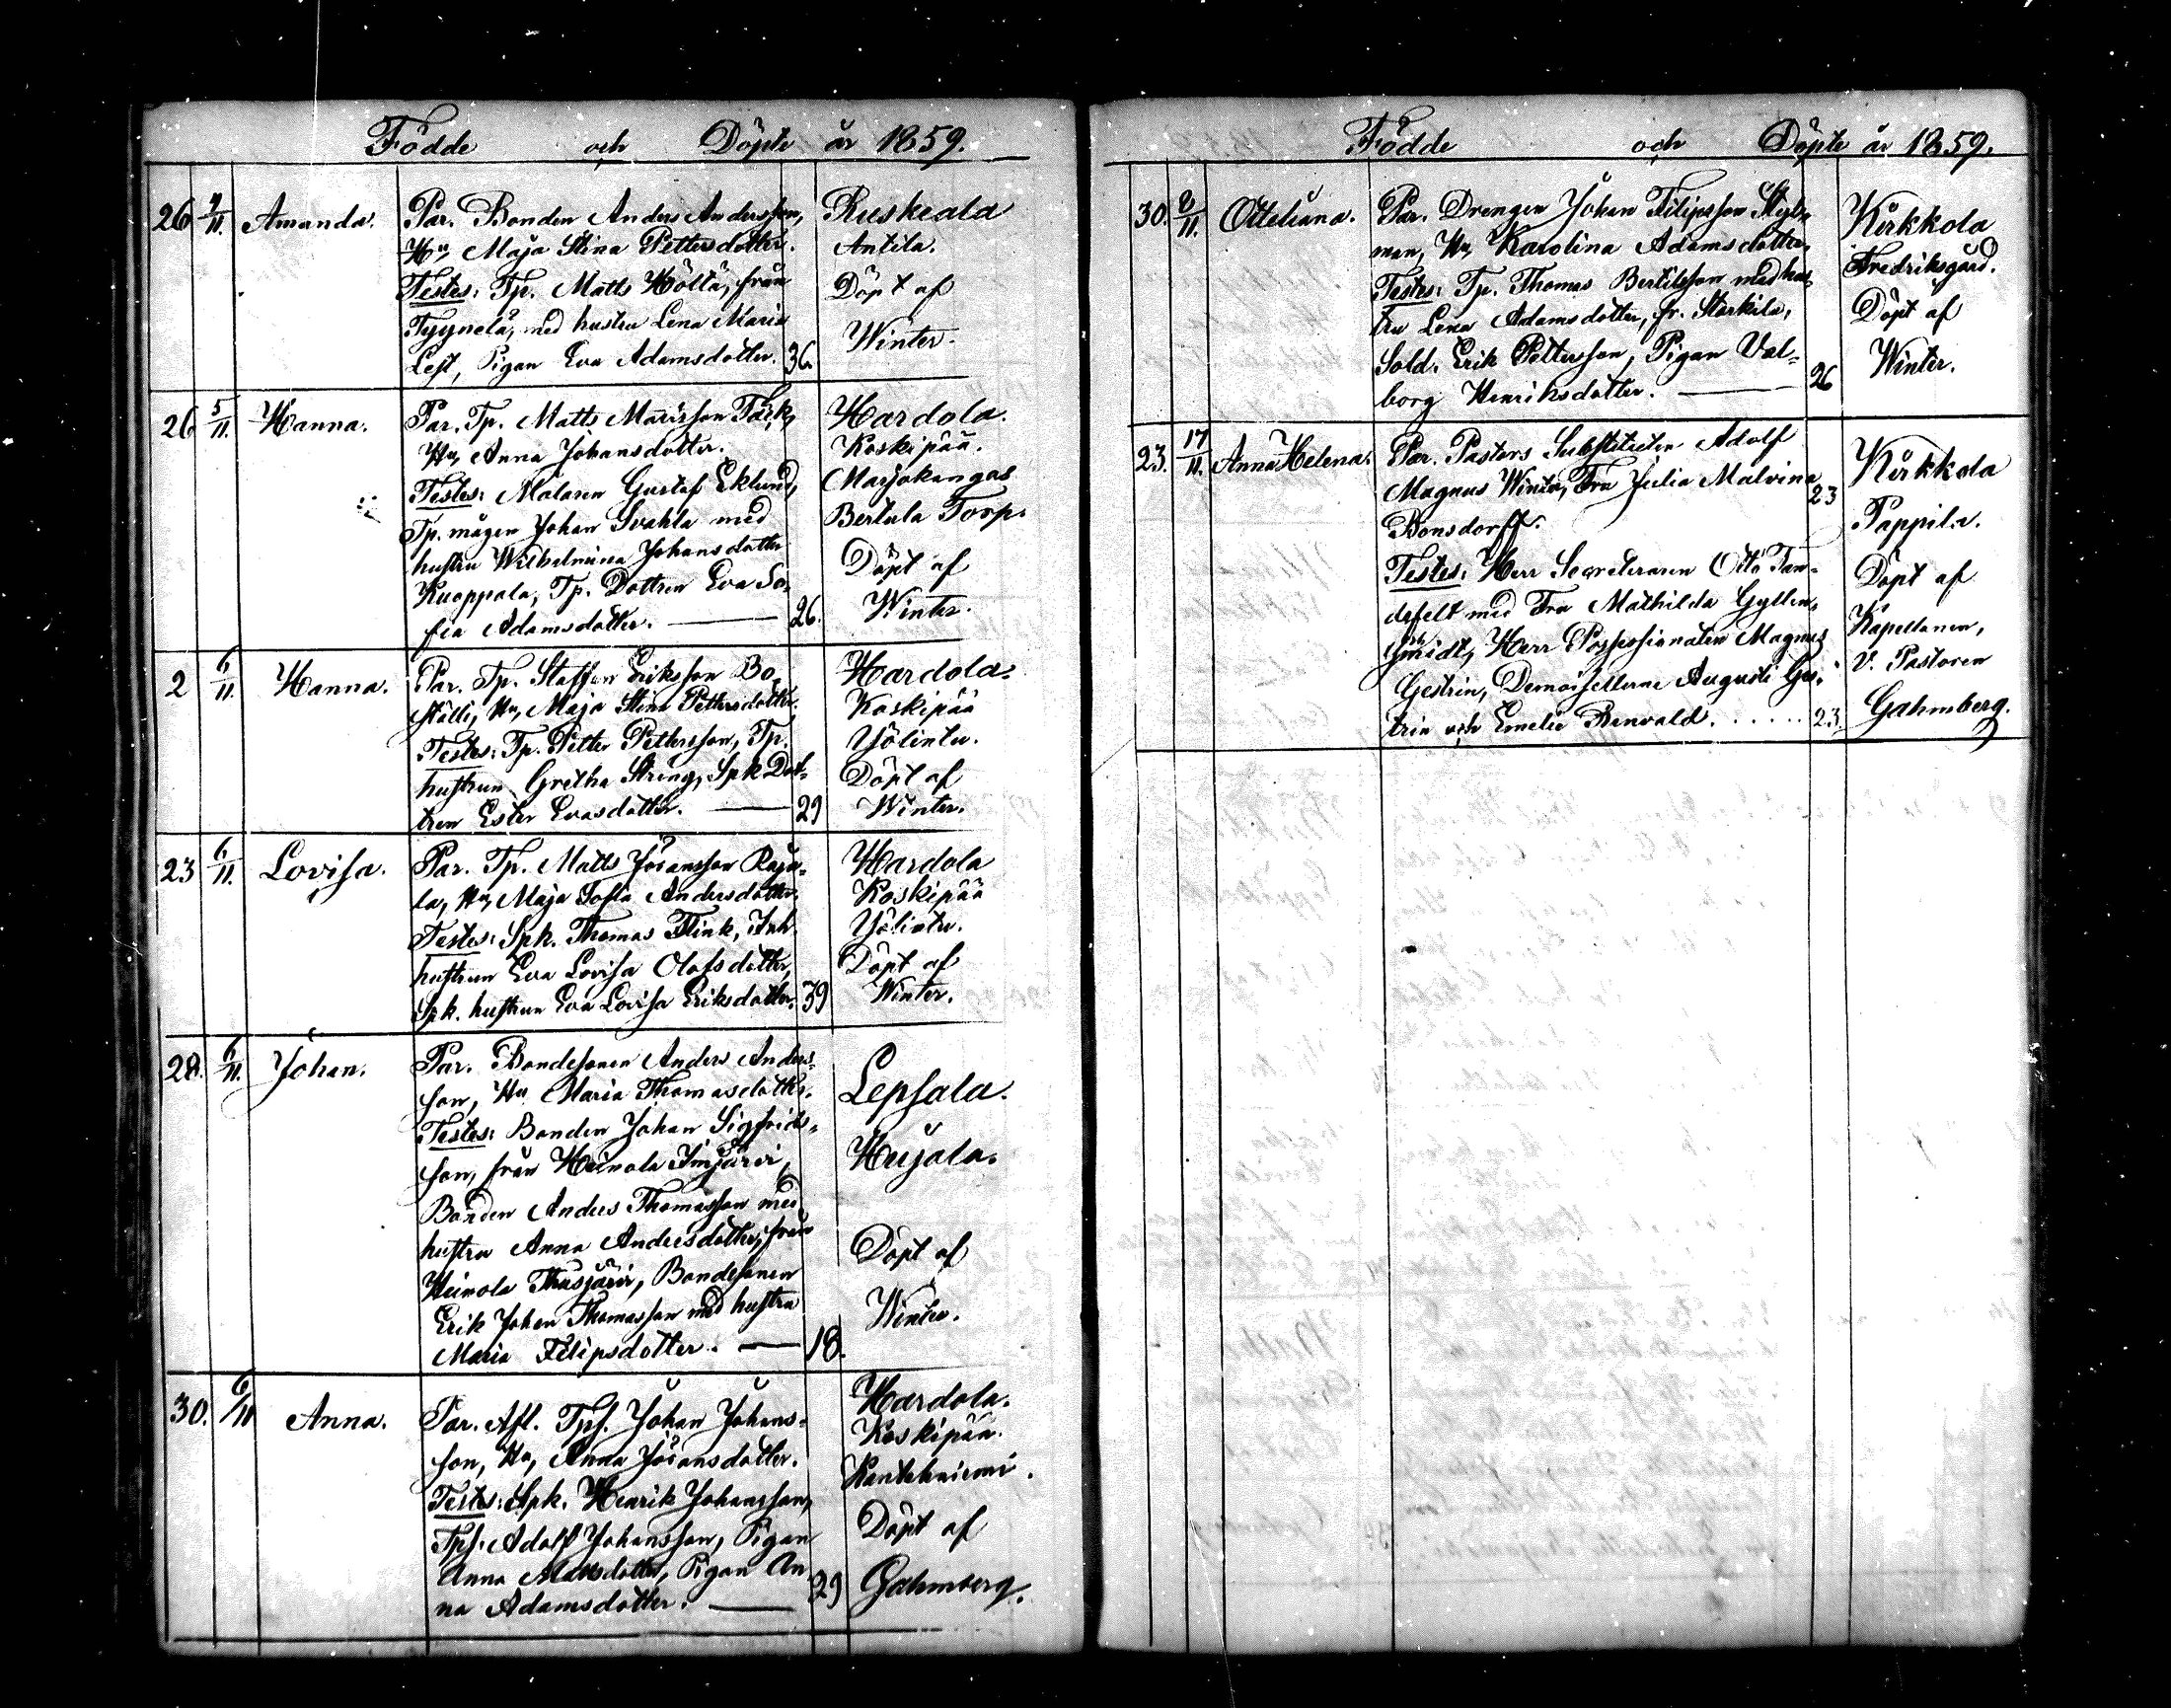 Födde och Döpte år 1859.
26 2/11. Amanda. Par. Bonden Anders Andersson, Ruskeala
Hu, Maja Stina Pettersdotter. Antila.
Testes: Tp. Matts Höltä, från Döpt af
Tyynelä, med hustru Lena Maria Winter.
Lest, Pigan Eva Adamsdotter. 36.
26 5/11. Hanna. Par. Tp. Matts Mattsson Tark, Hardola.
Hu, Anna Johansdotter. Koskipää.
Testes: Målaren Gustaf Eklund, Marjokangas
Tp. mågen Johan Svahla med Bertula Torp.
hustru Wilhelmina Johansdotter Döpt af
Kuoppala, Tp. Dottren Eva So- Winter.
fia Adamsdotter. 26.
2 6/11. Hanna. Par. Tp. Staffan Eriksson Bo- Hardola.
ställi, Hu, Maja Stina Pettersdotter. Koskipää
Testes: Tp. Petter Pettersson, Tp. Yölintu.
hustrun Gretha Streng, Spk Dot- Döpt af
tren Ester Evasdotter. 29 Winter.
23 6/11. Lovisa. Par. Tp. Matts Jöransson Raja- Hardola
la, Hu, Maja Sofia Andersdotter. Koskipää
Testes: Spk. Thomas Flink, Inh. Yölintu.
hustrun Eva Lovisa Olofsdotter, Döpt af
Spk. hustrun Eva Lovisa Eriksdotter. 39 Winter.
28. 6/11. Johan. Par. Bondesonen Anders Anders-
son, Hu, Maria Thomasdotter. Lepsala.
Testes: Bonden Johan Sigfrids-
son, från Heinola Imjärvi, Heijola.
Bonden Anders Thomasson med
hustru Anna Andersdotter, från Döpt af
Heinola Thusjärvi, Bondesonen
Erik Johan Thomasson med hustru Winter.
Maria Filipsdotter. 18.
30. 6/11 Anna. Par. Afl. Tps. Johan Johans- Hardola.
son, Hu, Anna Jöransdotter. Koskipää.
Testes: Spk. Henrik Johansson, Kantokniemi.
Tps. Adolf Johansson, Pigan Döpt af
Anna Mattsdotter, Pigan An- Gahmberg.
na Adamsdotter. 29
Födde och Döpte år 1859.
30. 8/11. Otteliana. Par. Drengen Johan Filipsson Styl- Kirkkola
man, Hu, Karolina Adamsdotter. Fredriksgård.
Testes: Tp. Thomas Bertilsson med hus- Döpt af
tru Lena Adamsdotter, fr. Storkila, Winter.
Sold. Erik Pettersson, Pigan Val-
borg Henriksdotter. 26
23. 17/11. Anna Helena. Par. Pastors Substituten Adolf Kirkkola
Magnus Winter, Fru Julia Malvina 23
Bonsdorff. Pappila.
Testes: Herr Secreteraren Otto Tan- Döpt af
defelt med Fru Mathilda Gyllen- Kapellanen,
schmidt, Herr Possessionaten Magnus V. Pastoren
Gestrin, Demoisellerne Augusti Ges- Gahmberg.
trin och Emelie Renvald. 23.